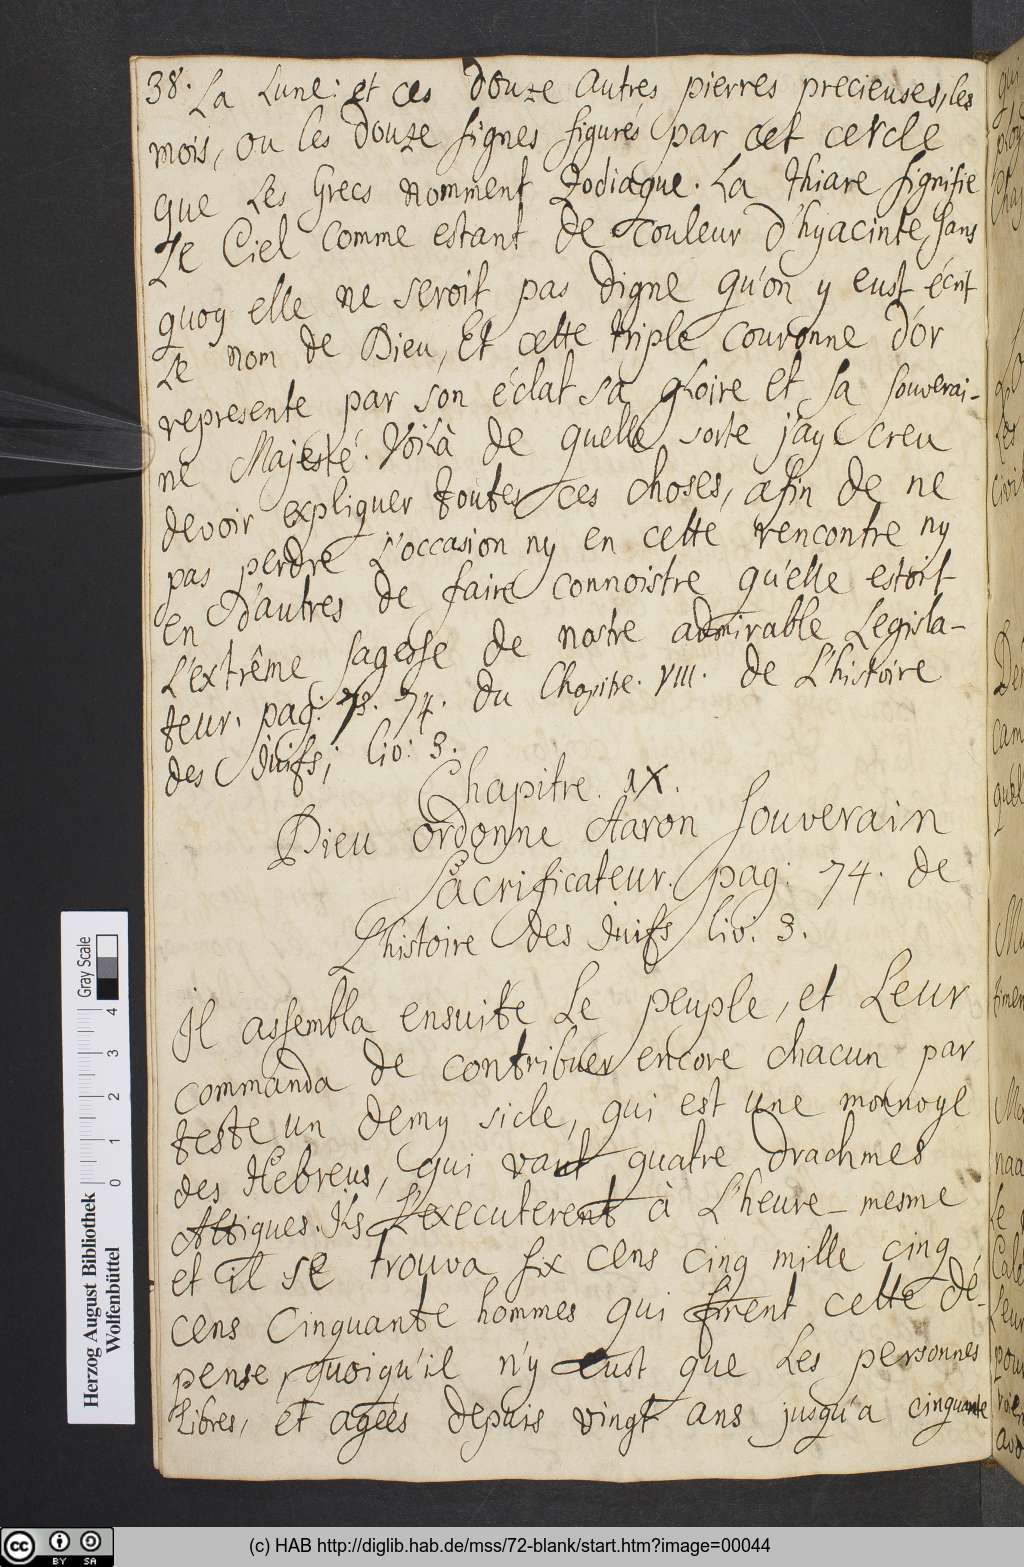 38. La Lune: et ces douze autres pierres precieuses, les
mois, ou les douze signes figurés par cet cercle
que Les Grecs nomment Zodiaque. La thiare signifie
Le Ciel comme estant de couleur d'hyacinte, sans
quoy elle ne seroit pas digne qu'on y eust écrit
Le nom de Dieu, Et cette triple couronne d'or
represente par son éclat sa gloire et sa souverai-
ne Majesté. Voilà de quelle sorte j'ay creu
devoir expliquer toutes ces choses, afin de ne
pas perdre L'occasion ny en cette rencontre ny
en d'autres de faire connoistre qu'elle estoit
L'extrême sagesse de nostre admirable Legisla-
teur. pag: 73. 74. du Chapitre. VIII. de L'histoire
des Juifs; liv: 3.
Chapitre. IX.
Dieu ordonne Aaron souverain
Sacrificateur. pag: 74. de
L'histoire des Juifs liv: 3.
Il assembla ensuite Le peuple, et Leur
commanda de contribuer encore chacun par
teste un demy sicle, qui est une monnoye
des Hebreus, qui vaut quatre drachmes
Attiques. Ils L'executerent à L'heure-mesme
et il se trouva six cens cinq mille cinq
cens Cinquante hommes qui firent cette dé-
pense, quoiqu'il n'y eust que Les personnes
Libres, et agées depuis vingt ans jusqu'a cinquante
Gray Scale
0 1 2 3 4
Herzog August Bibliothek
Wolfenbüttel
cc BY SA
(c) HAB http://diglib.hab.de/mss/72-blank/start.htm?image=00044